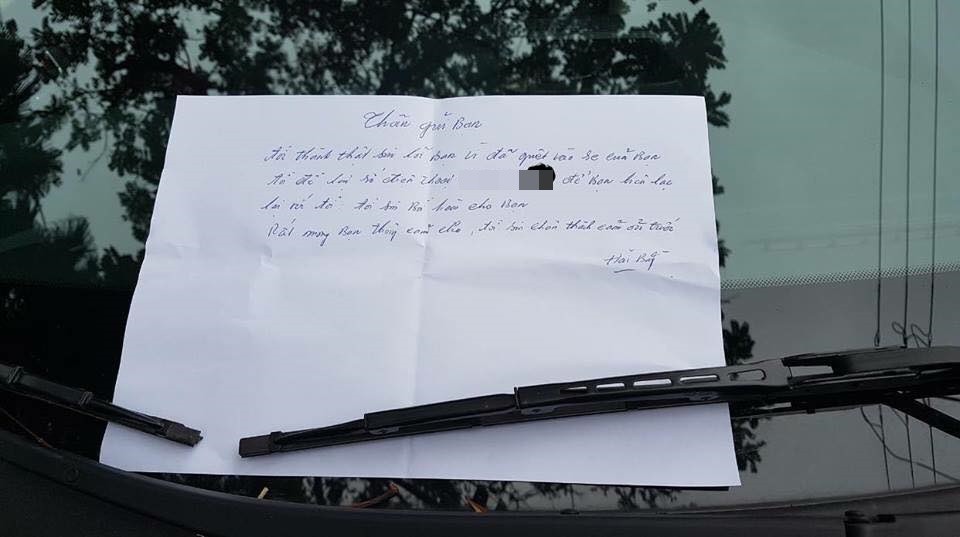 Thân gửi Bạn
Tôi thành thật xin lỗi Bạn vì đã quẹt vào xe của Bạn
Tôi để lại số điện thoại để Bạn liên lạc
lại với tôi tôi xin Bồi hoàn cho Bạn
Rất mong Bạn thông cảm cho, tôi xin chân thành cảm ơn trước